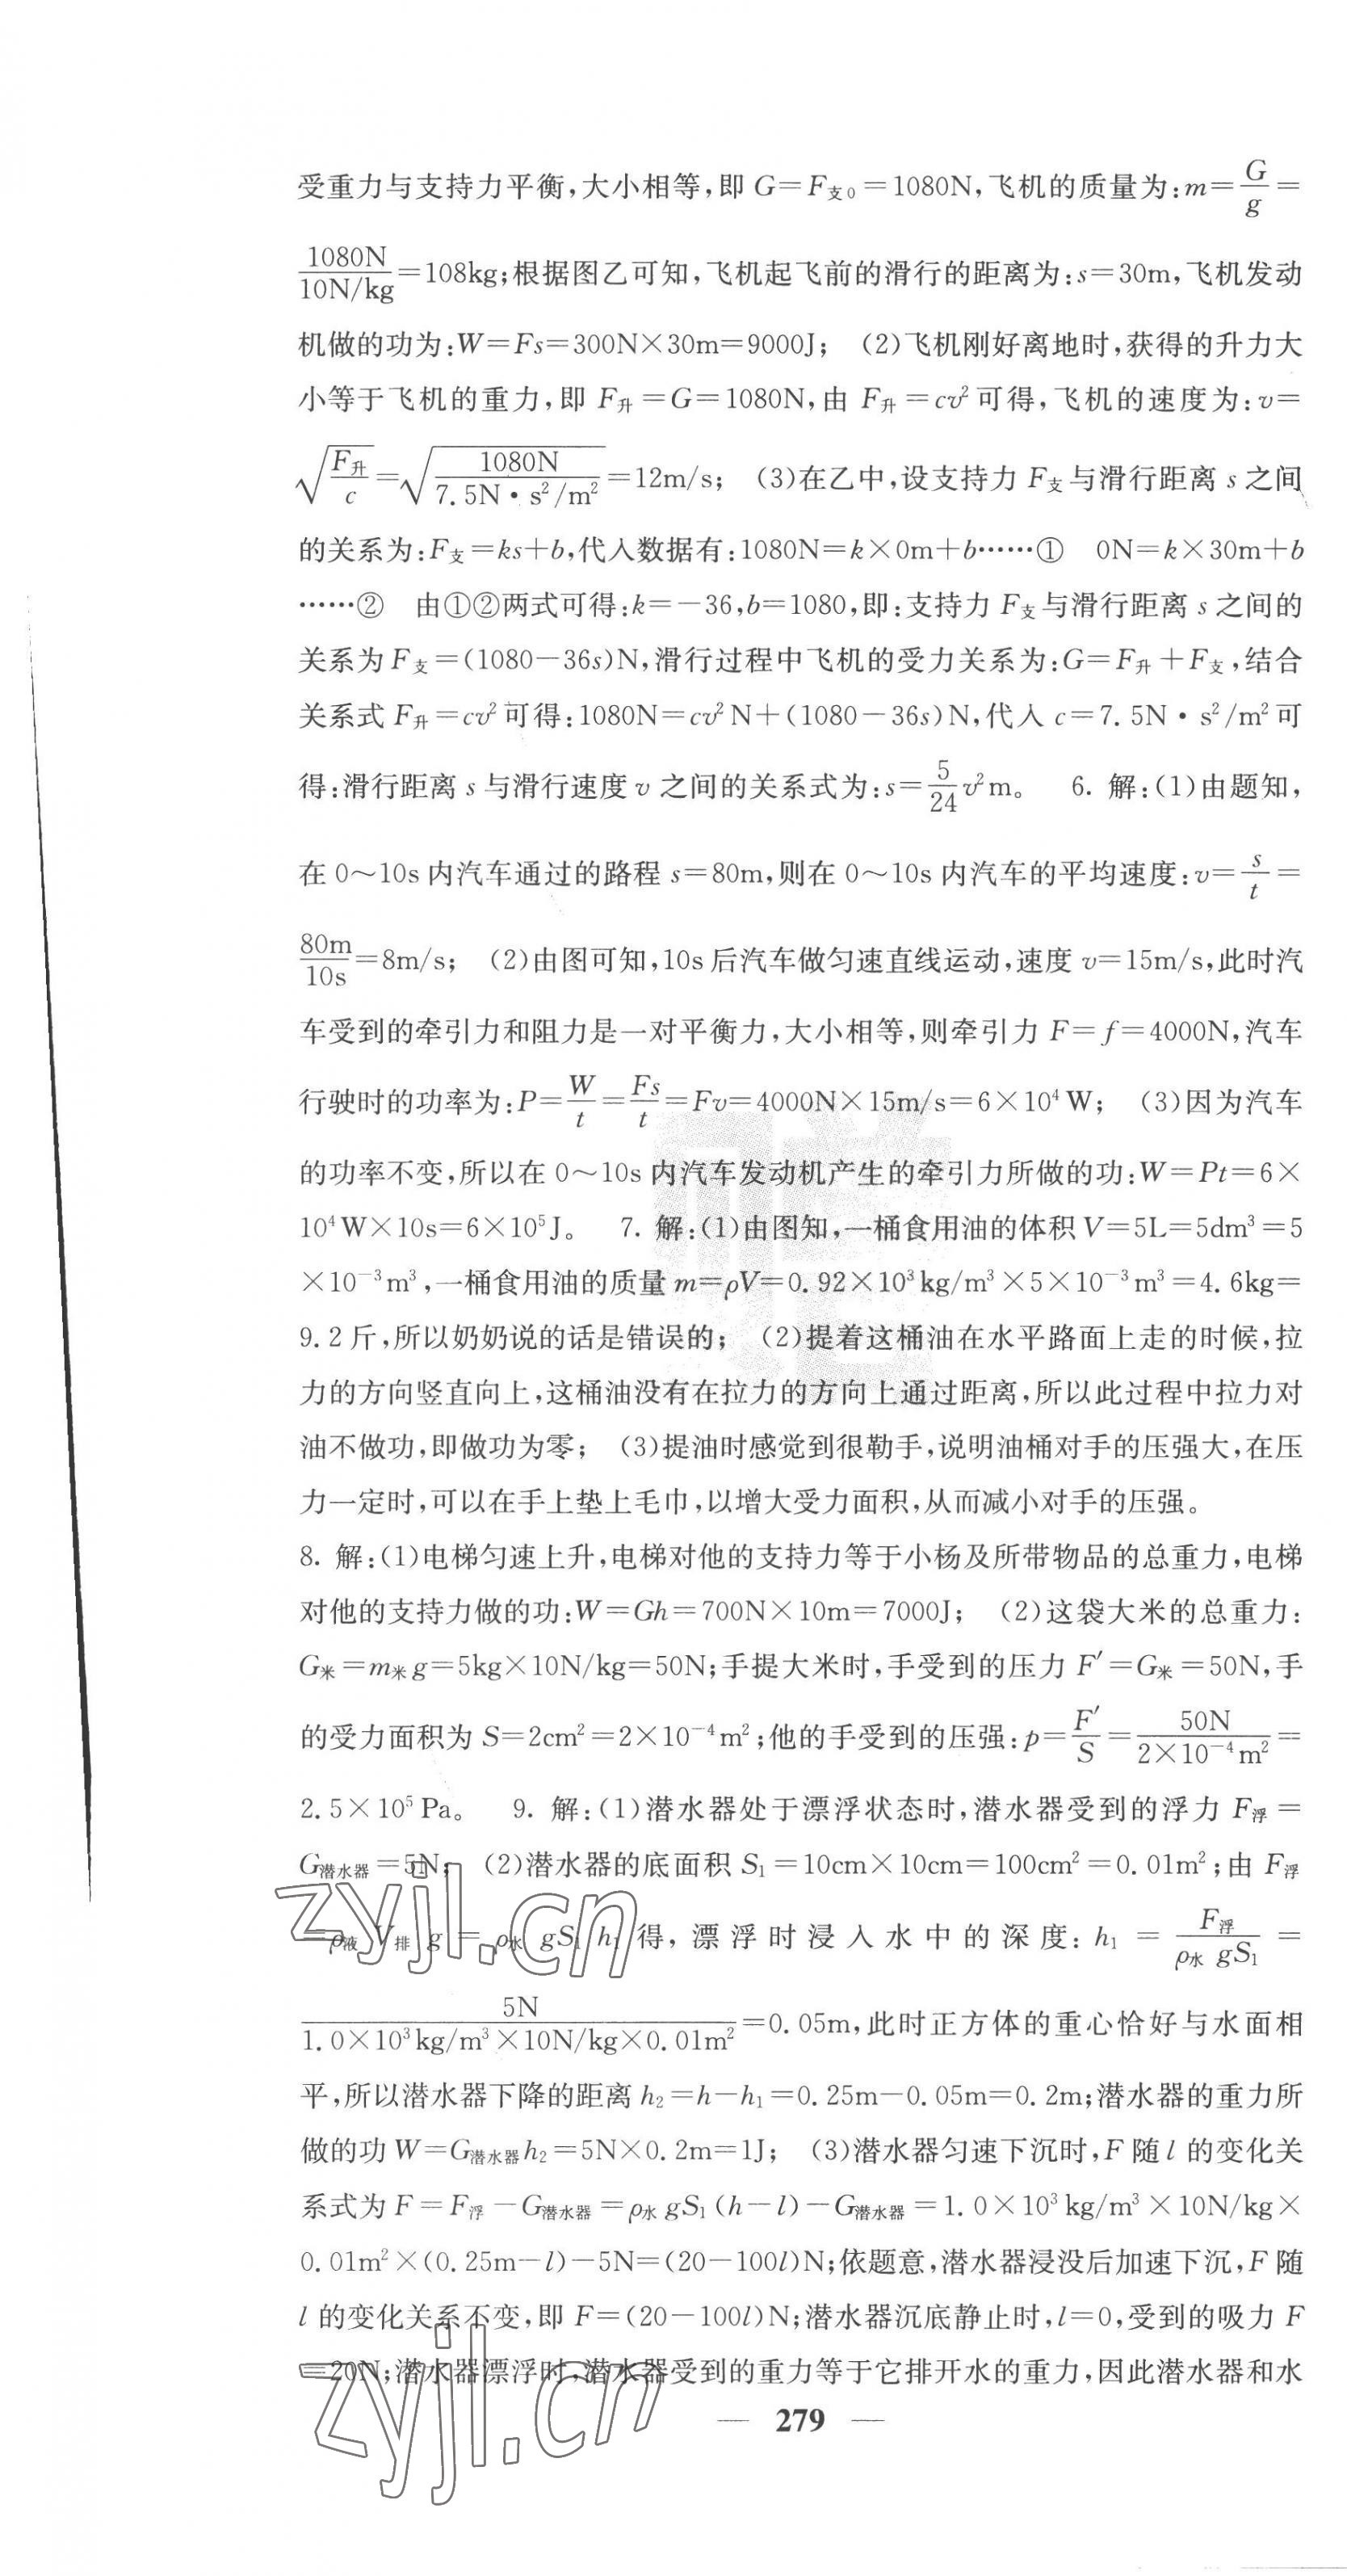 受重力与支持力平衡,大小相等,即 G=F支0=1080N,飞机的质量为:m=G/g=
1080N/10N/kg=108kg;根据图乙可知,飞机起飞前的滑行的距离为:s=30m,飞机发动
机做的功为:W=Fs=300N×30m=9000J; (2)飞机刚好离地时,获得的升力大
小等于飞机的重力,即 F升=G=1080N,由 F升=cv²可得,飞机的速度为:v=
√(F升/c)=√(1080N/7.5N·s²/m²)=12m/s; (3)在乙中,设支持力 F支与滑行距离 s 之间
的关系为:F支=ks+b,代入数据有:1080N=k×0m+b……① 0N=k×30m+b
……② 由①②两式可得:k=-36,b=1080,即:支持力 F支与滑行距离 s 之间的
关系为 F支=(1080-36s)N,滑行过程中飞机的受力关系为:G=F升+F支,结合
关系式 F升=cv²可得:1080N=cv²N+(1080-36s)N,代入 c=7.5N·s²/m²可
得:滑行距离 s 与滑行速度 v 之间的关系式为:s=5/24v²m。 6. 解:(1)由题知,
在 0~10s 内汽车通过的路程 s=80m,则在 0~10s 内汽车的平均速度:v=s/t=
80m/10s=8m/s; (2)由图可知,10s 后汽车做匀速直线运动,速度 v=15m/s,此时汽
车受到的牵引力和阻力是一对平衡力,大小相等,则牵引力 F=f=4000N,汽车
行驶时的功率为:P=W/t=Fs/t=Fv=4000N×15m/s=6×10⁴W; (3)因为汽车
的功率不变,所以在 0~10s 内汽车发动机产生的牵引力所做的功:W=Pt=6×
10⁴W×10s=6×10⁵J。 7. 解:(1)由图知,一桶食用油的体积 V=5L=5dm³=5
×10⁻³m³,一桶食用油的质量 m=ρV=0.92×10³kg/m³×5×10⁻³m³=4.6kg=
9.2 斤,所以奶奶说的话是错误的; (2)提着这桶油在水平路面上走的时候,拉
力的方向竖直向上,这桶油没有在拉力的方向上通过距离,所以此过程中拉力对
油不做功,即做功为零; (3)提油时感觉到很勒手,说明油桶对手的压强大,在压
力一定时,可以在手上垫上毛巾,以增大受力面积,从而减小对手的压强。
8. 解:(1)电梯匀速上升,电梯对他的支持力等于小杨及所带物品的总重力,电梯
对他的支持力做的功:W=Gh=700N×10m=7000J; (2)这袋大米的总重力:
G米=m米g=5kg×10N/kg=50N;手提大米时,手受到的压力 F′=G米=50N,手
的受力面积为 S=2cm²=2×10⁻⁴m²;他的手受到的压强:p=F′/S=50N/2×10⁻⁴m²=
2.5×10⁵Pa。 9. 解:(1)潜水器处于漂浮状态时,潜水器受到的浮力 F浮=
G潜水器=5N; (2)潜水器的底面积 S₁=10cm×10cm=100cm²=0.01m²;由 F浮
=ρ液V排g=ρ水gS₁h₁得,漂浮时浸入水中的深度:h₁=F浮/ρ水gS₁=
5N/1.0×10³kg/m³×10N/kg×0.01m²=0.05m,此时正方体的重心恰好与水面相
平,所以潜水器下降的距离 h₂=h-h₁=0.25m-0.05m=0.2m;潜水器的重力所
做的功 W=G潜水器h₂=5N×0.2m=1J; (3)潜水器匀速下沉时,F 随 l 的变化关
系式为 F=F浮-G潜水器=ρ水gS₁(h-l)-G潜水器=1.0×10³kg/m³×10N/kg×
0.01m²×(0.25m-l)-5N=(20-100l)N;依题意,潜水器浸没后加速下沉,F 随
l 的变化关系不变,即 F=(20-100l)N;潜水器沉底静止时,l=0,受到的吸力 F
=20N;潜水器漂浮时,潜水器受到的重力等于它排开水的重力,因此潜水器和水
— 279 —
zyjl.cn
zyjl.cn